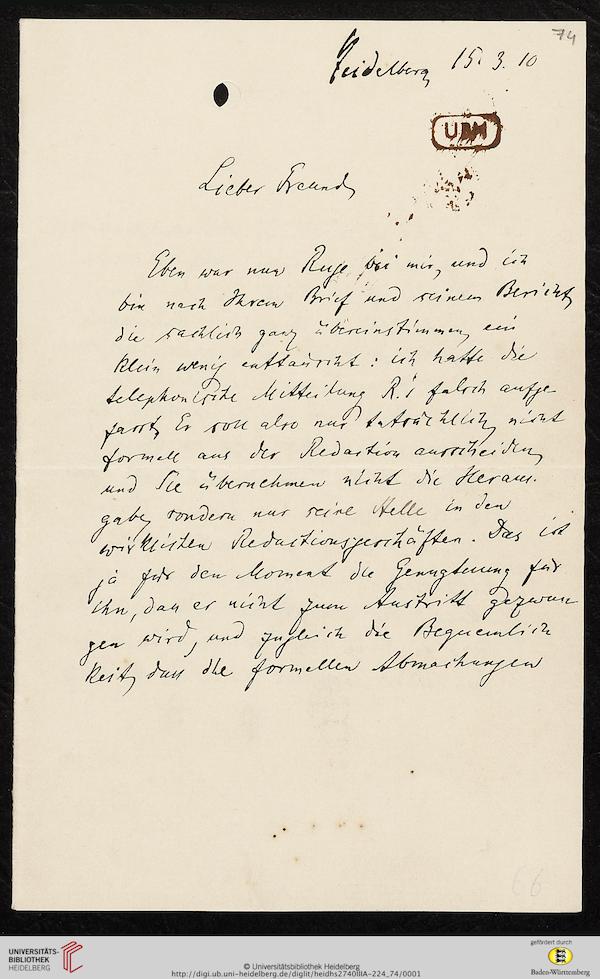 74
Heidelberg 15. 3. 10
UBH
Lieber Freund,
Eben war nun Ruge bei mir, und ich
bin nach Ihrem Brief und seinem Bericht,
die sachlich ganz übereinstimmen, ein
klein wenig enttäuscht: ich hatte die
telephonische Mitteilung R.'s falsch aufge-
fasst. Er soll also nur tatsächlich, nicht
formell aus der Redaction ausscheiden,
und Sie übernehmen nicht die Heraus-
gabe, sondern nur seine Stelle in den
wirklichen Redactionsgeschäften. Das ist
ja für den Moment die Genugtuung für
ihn, dass er nicht zum Austritt gezwun-
gen wird, und zugleich die Bequemlich-
keit, dass die formellen Abmachungen
66
UNIVERSITÄTS-
BIBLIOTHEK
HEIDELBERG
© Universitätsbibliothek Heidelberg
http://digi.ub.uni-heidelberg.de/diglit/heidhs2740IIIA-224_74/0001
gefördert durch
Baden-Württemberg